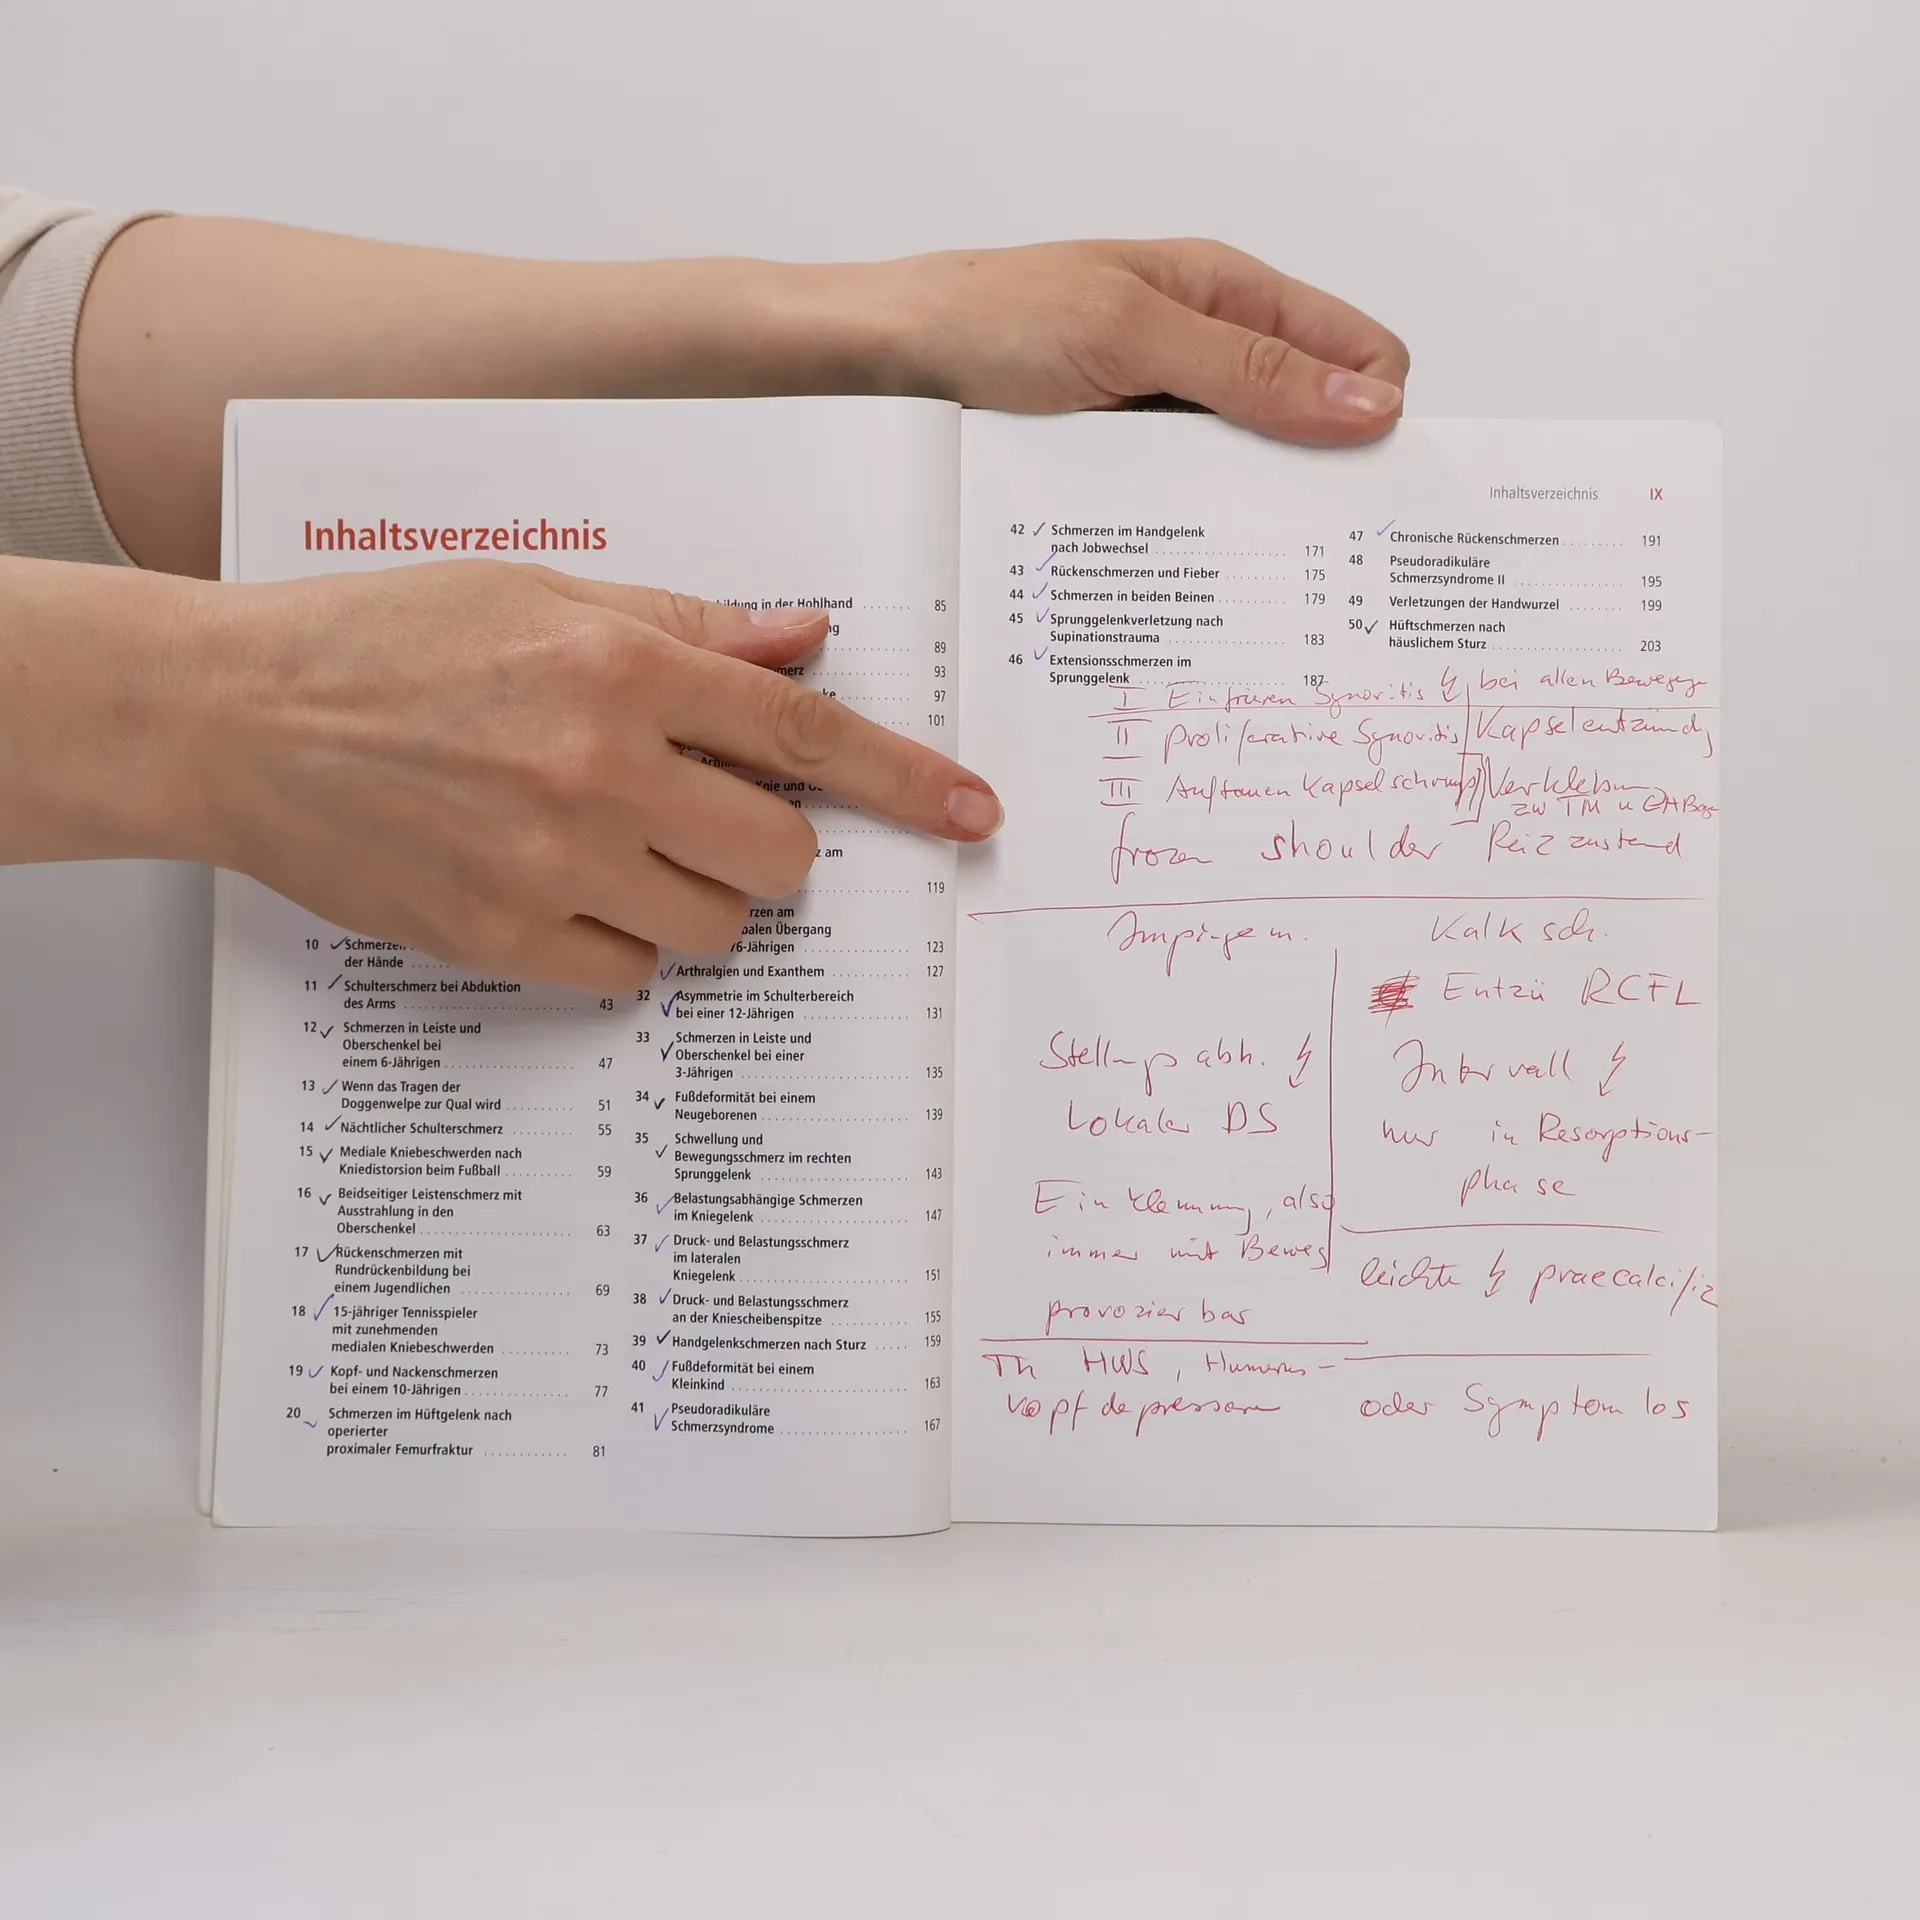 Inhaltsverzeichnis
10 Schmerzen
der Hände
11 Schulterschmerz bei Abduktion
des Arms 43
12 Schmerzen in Leiste und
Oberschenkel bei
einem 6-Jährigen 47
13 Wenn das Tragen der
Doggenwelpe zur Qual wird 51
14 Nächtlicher Schulterschmerz 55
15 Mediale Kniebeschwerden nach
Kniedistorsion beim Fußball 59
16 Beidseitiger Leistenschmerz mit
Ausstrahlung in den
Oberschenkel 63
17 Rückenschmerzen mit
Rundrückenbildung bei
einem Jugendlichen 69
18 15-jähriger Tennisspieler
mit zunehmenden
medialen Kniebeschwerden 73
19 Kopf- und Nackenschmerzen
bei einem 10-Jährigen 77
20 Schmerzen im Hüftgelenk nach
operierter
proximaler Femurfraktur 81
in der Hohlhand 85
89
93
97
101
Knie und
am
119
am
Übergang
123
Arthralgien und Exanthem 127
32 Asymmetrie im Schulterbereich
bei einer 12-Jährigen 131
33 Schmerzen in Leiste und
Oberschenkel bei einer
3-Jährigen 135
34 Fußdeformität bei einem
Neugeborenen 139
35 Schwellung und
Bewegungsschmerz im rechten
Sprunggelenk 143
36 Belastungsabhängige Schmerzen
im Kniegelenk 147
37 Druck- und Belastungsschmerz
im lateralen
Kniegelenk 151
38 Druck- und Belastungsschmerz
an der Kniescheibenspitze 155
39 Handgelenkschmerzen nach Sturz 159
40 Fußdeformität bei einem
Kleinkind 163
41 Pseudoradikuläre
Schmerzsyndrome 167
Inhaltsverzeichnis IX
42 Schmerzen im Handgelenk
nach Jobwechsel 171
43 Rückenschmerzen und Fieber 175
44 Schmerzen in beiden Beinen 179
45 Sprunggelenkverletzung nach
Supinationstrauma 183
46 Extensionsschmerzen im
Sprunggelenk 187
47 Chronische Rückenschmerzen 191
48 Pseudoradikuläre
Schmerzsyndrome II 195
49 Verletzungen der Handwurzel 199
50 Hüftschmerzen nach
häuslichem Sturz 203
I Einfrieren Synovitis bei allen
II proliferative Synovitis Kapselentzündg
III Auftauen Kapselschrumpf
zw TM u
frozen shoulder Reizzustand
Impingem.
Stellungsabh.
Lokaler DS
Einklemmung, also
immer mit Beweg
provozierbar
Th HWS, Humerus-
kopfdepressoren
Kalksch.
Entzü RCFL
Intervall
nur in Resorptions-
phase
leichte praecalcifiz
oder Symptomlos